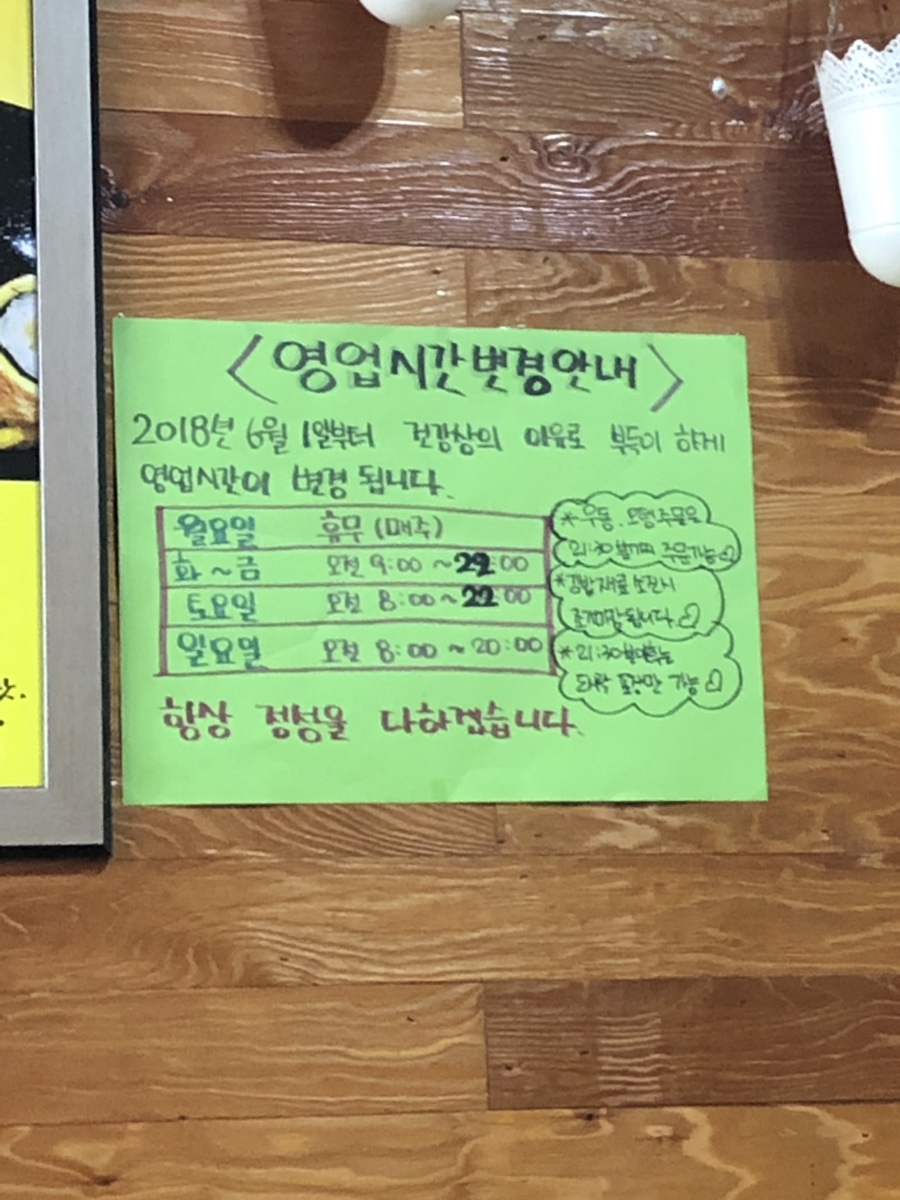 <영업시간변경안내>
2018년 6월 1일부터 건강상의 이유로 부득이 하게
영업시간이 변경 됩니다.
월요일 휴무 (매주)
화~금 오전 9:00 ~ 22:00
토요일 오전 8:00 ~ 22:00
일요일 오전 8:00 ~ 20:00
*우동.오뎅주문은
21:30분까지 주문가능
*김밥재료 소진시
조기마감됩니다
*21:30분이후는
포장만 가능
항상 정성을 다하겠습니다.